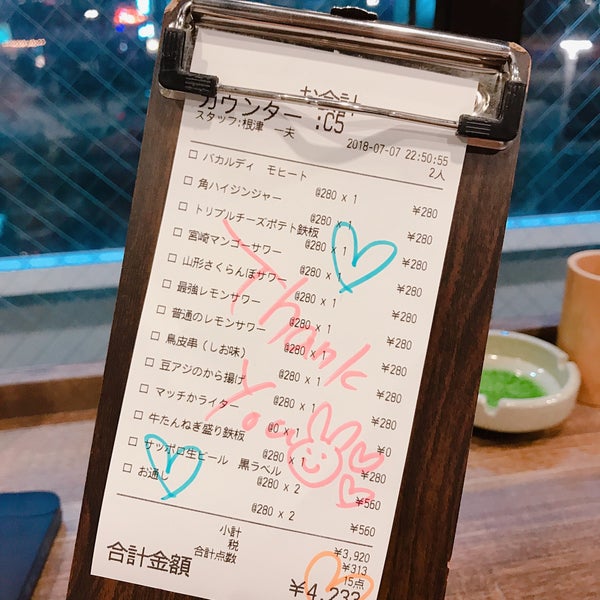 お会計
カウンター :C5
スタッフ:根津 一夫
2018-07-07 22:50:55
2人
バカルディ モヒート
@280 x 1 ¥280
角ハイジンジャー
@280 x 1 ¥280
トリプルチーズポテト鉄板
@280 x 1 ¥280
宮崎マンゴーサワー
@280 x 1 ¥280
山形さくらんぼサワー
@280 x 1 ¥280
最強レモンサワー
@280 x 1 ¥280
普通のレモンサワー
@280 x 1 ¥280
鳥皮串(しお味)
@280 x 1 ¥280
豆アジのから揚げ
@280 x 1 ¥280
マッチかライター
@0 x 1 ¥0
牛たんねぎ盛り鉄板
@280 x 1 ¥280
サッポロ生ビール 黒ラベル
@280 x 2 ¥560
お通し
@280 x 2 ¥560
小計 ¥3,920
税 ¥313
合計点数 15点
合計金額 ¥4,233
Thank
You